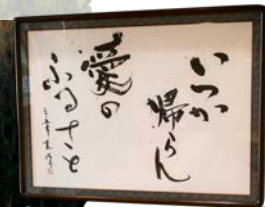 いつか
帰らん
愛の
ふるさと